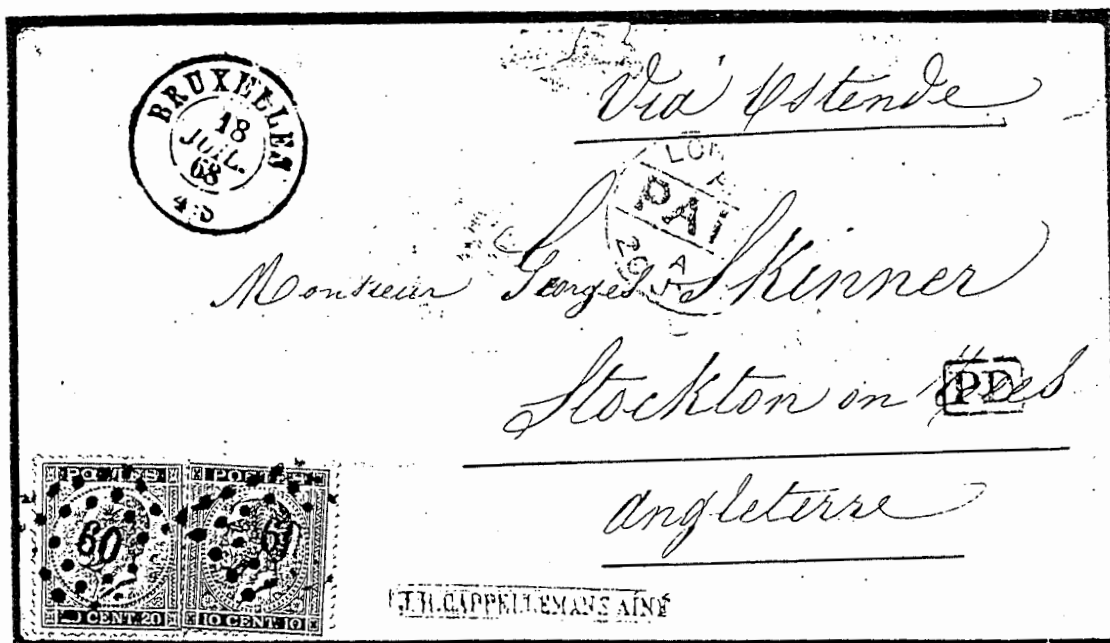 BRUXELLES
18
JUIL.
68
Via Ostende
LON
PAI
20 JY
Monsieur Georges Skinner
Stockton on Tees
PD
Angleterre
POSTES
60
20 CENT. 20
POSTES
10 CENT. 10
J.H. CAPPELLEMANS AINÉ